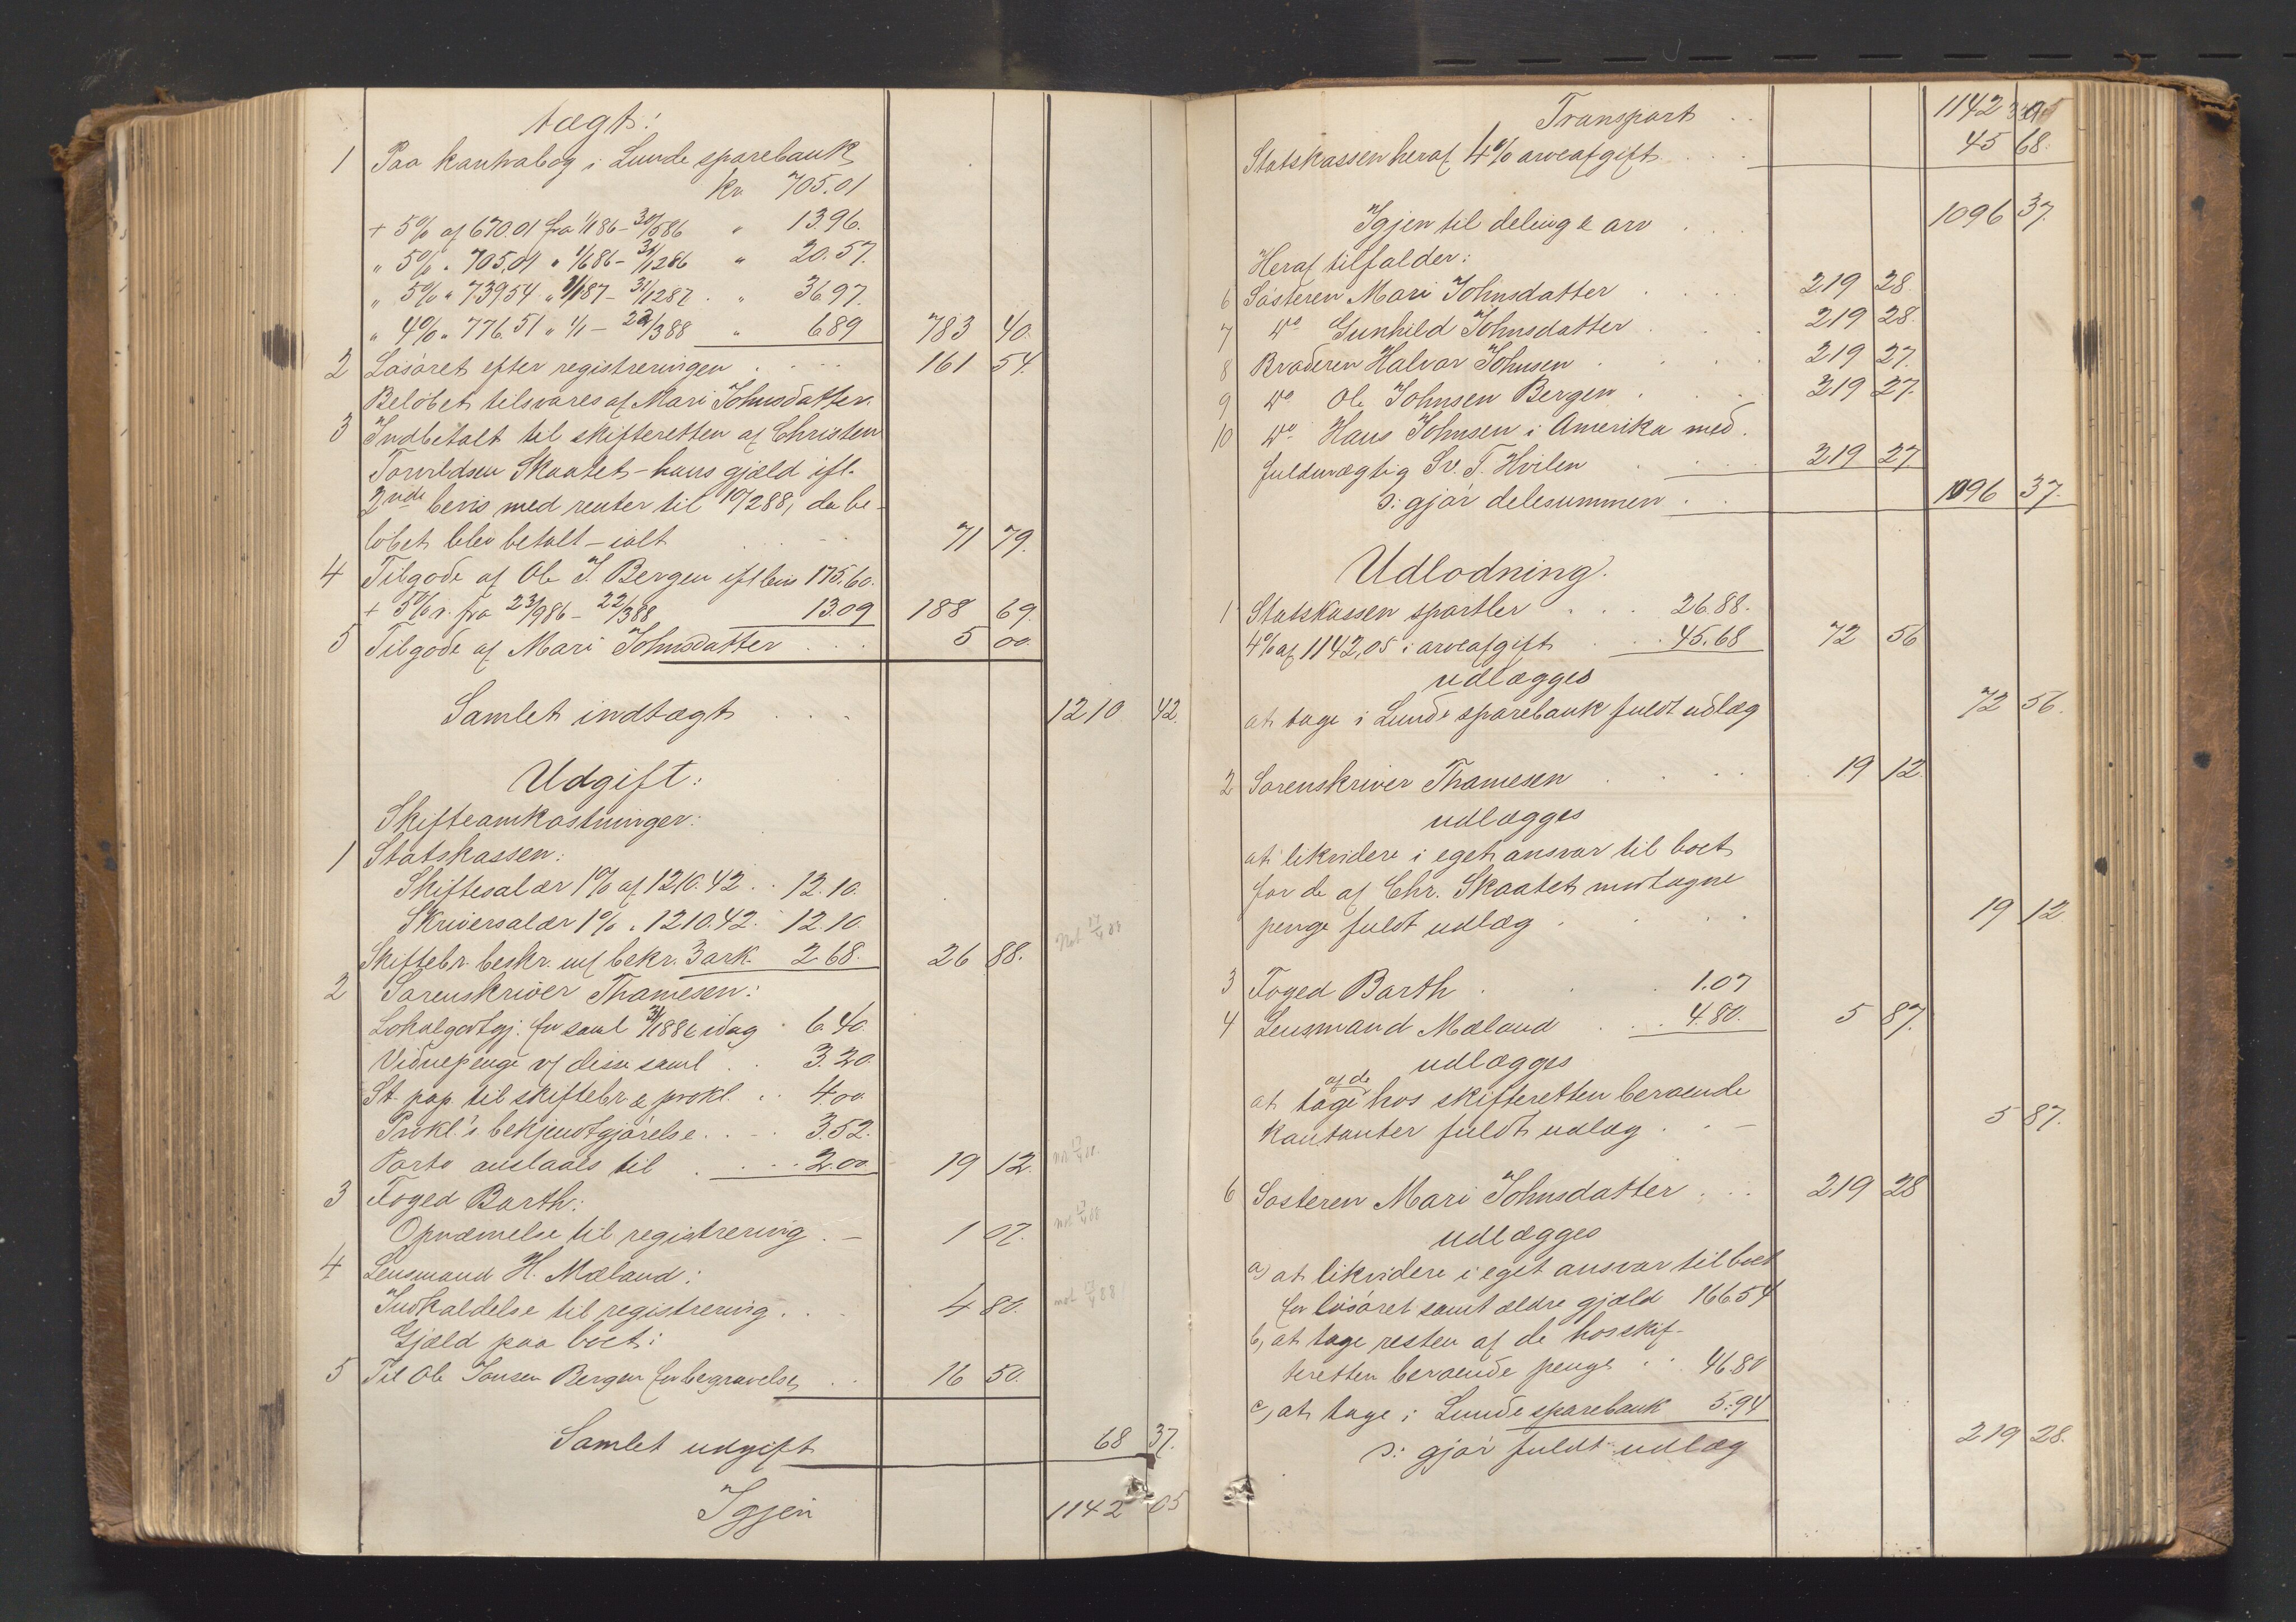 tægt:
1 Paa kontrabog i Lunde sparebank
kr. 705.01
+ 5% af 670.01 fra 1/1 86 - 30/5 86 " 13.96.
" 5% " 705.01 " 1/6 86 - 31/12 86 " 20.57.
" 5% " 739.54 " 1/1 87 - 31/12 87 . " 36.97.
" 4% " 776.51 " 1/1 - 22/3 88 " 6.89 783 40.
2 Løsøret efter registreringen . . . 161 54.
Beløbet tilsvares af Mari Johnsdatter.
3 Indbetalt til skifteretten af Christen
Torvildsen Skaatet - hans gjæld ifl.
2nde bevis med renter til 10/2 88, da be-
løbet blev betalt - ialt 71 79.
4 Tilgode af Ole J. Bergen ifl bevis 175.60.
+ 5% r. fra 23/9 86 - 22/3 88 13.09 188 69.
5 Tilgode af Mari Johnsdatter . . . 5 00.
Samlet indtægt . . . 1210 42.
Udgift:
Skifteomkostninger:
1 Statskassen:
Skiftesalær 1% af 1210.42 . . 12.10.
Skriversalær 1% " 1210.42. 12.10.
Skiftebr. beskr. m/ bekr. 3 ark. 2.68. 26 88.
2 Sorenskriver Thomesen:
Lokalgodtgj. for saml 31/1 88 & idag . 6.40.
Vidnepenge v/ disse saml . . 3.20.
St. pap. til skiftebr. & prokl. . . 4.00
Prokl.'s bekjendtgjørelse . . . 3.52.
Porto anslaaes til . . . . 2.00 19 12.
3 Foged Barth:
Opnævnelse til registrering . - 1 07.
4 Lensmand H. Mæland:
Indkaldelse til registrering . . . 4 80.
Gjæld paa boet:
5 Til Ole Jonsen Bergen for begravelse . . 16 50.
Samlet udgift 68 37.
Igjen 1142 05
Transport . . 1142 05
Statskassen heraf 4% arveafgift . . . 45 68.
Igjen til deling & arv . . . 1096 37.
Heraf tilfalder:
6 Søsteren Mari Johnsdatter . . . . 219 28.
7 do Gunhild Johnsdatter . . . 219 28.
8 Broderen Halvor Johnsen . . . . 219 27.
9 do Ole Johnsen Bergen . . . 219 27.
10 do Hans Johnsen i Amerika med.
fuldmægtig Sv. T. Hvilen . . . 219 27.
ɔ: gjør delesummen . . 1096 37.
Udlodning.
1 Statskassen sportler . . . 26.88.
4% af 1142,05 i arveafgift . . . 45.68 72 56
udlægges
at tage i Lunde sparebank fuldt udlæg 72 56.
2 Sorenskriver Thomesen . . . . 19 12.
udlægges
at likvidere i eget ansvar til boet
for de af Chr. Skaatet modtagne
penge fuldt udlæg . . . . 19 12
3 Foged Barth . . . 1.07
4 Lensmand Mæland . . . 4.80. 5 87.
udlægges
af de
at tage hos skifteretten beroende
kontanter fuldt udlæg . . - 5 87.
6 Søsteren Mari Johnsdatter . . . 219 28
udlægges
a, at likvidere i eget ansvar til boet
for løsøret samt ældre gjæld 166.54
b, at tage resten af de hos skif-
teretten beroende penge . . 46.80
c, at tage i Lunde sparebank 5.94
ɔ: gjør fuldt udlæg 219 28.